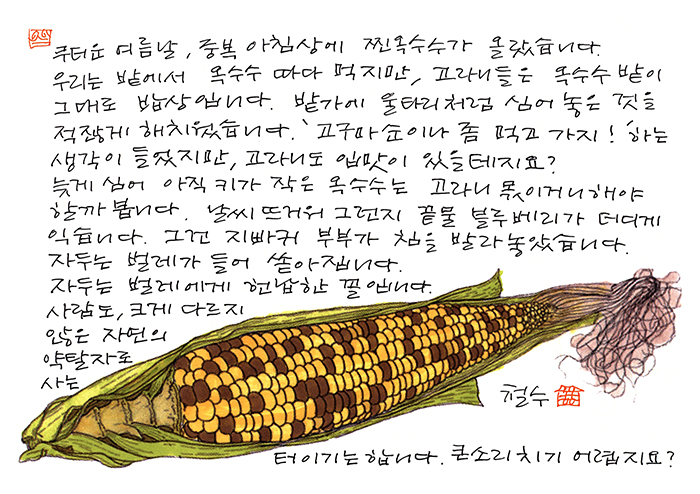 무더운 여름날, 중복 아침상에 찐옥수수가 올랐습니다.
우리는 밭에서 옥수수 따다 먹지만, 고라니들은 옥수수밭이
그대로 밥상입니다. 밭가에 울타리처럼 심어 놓은 것을
적잖게 해치웠습니다. '고구마순이나 좀 먹고 가지!' 하는
생각이 들었지만, 고라니도 입맛이 있을테지요?
늦게 심어 아직 키가 작은 옥수수는 고라니 몫이거니해야
할까 봅니다. 날씨 뜨거워 그런지 끝물 블루베리가 더디게
익습니다. 그건 지빠귀 부부가 침을 발라놓았습니다.
자두는 벌레가 들어 쏟아집니다.
자두는 벌레에게 헌납한 꼴입니다.
사람도, 크게 다르지
않은 자연의
약탈자로
사는
철수
터이기는 합니다. 큰소리치기 어렵지요?